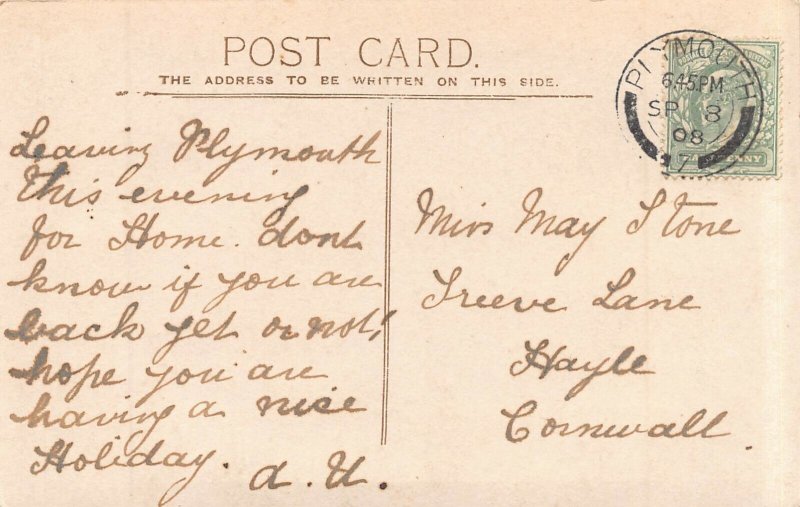 POST CARD.
THE ADDRESS TO BE WRITTEN ON THIS SIDE.
PLYMOUTH
6.45PM
SP 8
08
Leaving Plymouth
this evening
for Home. dont
know if you are
back yet or not!
hope you are
having a nice
Holiday. a. U.
Miss May Stone
Treeve Lane
Hayle
Cornwall.